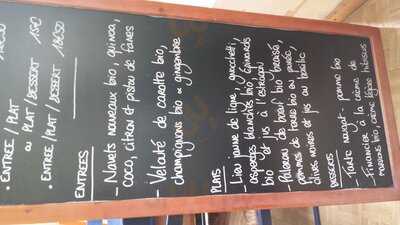 • ENTREE / PLAT
ou PLAT / DESSERT 15€
• ENTREE / PLAT / DESSERT 18€50
ENTREES
- Navets nouveaux bio, quinoa,
coco, citron et pistou de fanes
- Velouté de carotte bio,
champignons bio & gingembre
PLATS
- Lieu jaune de ligne, gnocchetti,
asperges blanches bio, épinards
bio et jus à l'estragon
- Paleron de bœuf bio braisé,
pommes de terre bio en purée,
olives noires et jus au basilic
DESSERTS
- Tarte nougat - pomme bio
- Financier à la crème de
marrons bio, crème légère hibiscus